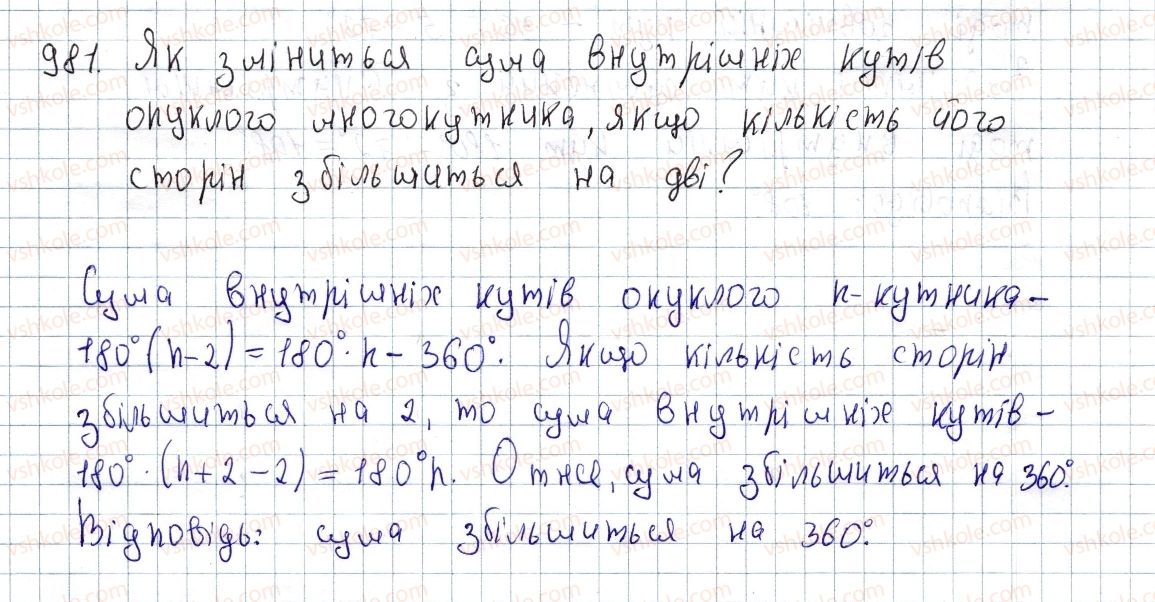 981. Як зміниться сума внутрішніх кутів
опуклого многокутника, якщо кількість його
сторін збільшиться на дві?
Сума внутрішніх кутів опуклого n-кутника –
180°(n-2) = 180°·n - 360°. Якщо кількість сторін
збільшиться на 2, то сума внутрішніх кутів –
180°·(n+2-2) = 180°n. Отже, сума збільшиться на 360°.
Відповідь: сума збільшиться на 360°.